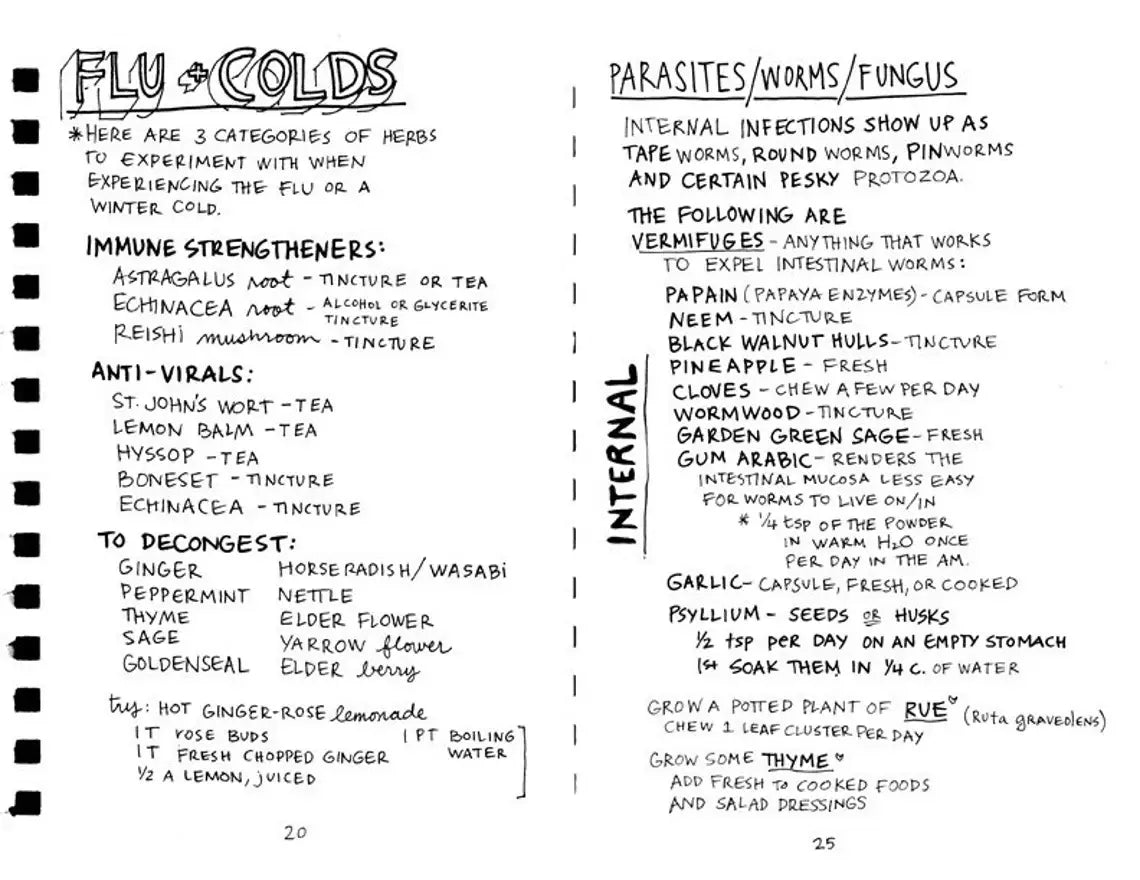 FLU + COLDS
*HERE ARE 3 CATEGORIES OF HERBS
TO EXPERIMENT WITH WHEN
EXPERIENCING THE FLU OR A
WINTER COLD.
IMMUNE STRENGTHENERS:
ASTRAGALUS root - TINCTURE OR TEA
ECHINACEA root - ALCOHOL OR GLYCERITE
TINCTURE
REISHI mushroom - TINCTURE
ANTI-VIRALS:
ST. JOHN'S WORT - TEA
LEMON BALM - TEA
HYSSOP - TEA
BONESET - TINCTURE
ECHINACEA - TINCTURE
TO DECONGEST:
GINGER HORSERADISH/WASABI
PEPPERMINT NETTLE
THYME ELDER FLOWER
SAGE YARROW flower
GOLDENSEAL ELDER berry
try: HOT GINGER-ROSE lemonade
1 T ROSE BUDS 1 PT BOILING
1 T FRESH CHOPPED GINGER WATER
1/2 A LEMON, JUICED
20
PARASITES/WORMS/FUNGUS
INTERNAL INFECTIONS SHOW UP AS
TAPE WORMS, ROUND WORMS, PINWORMS
AND CERTAIN PESKY PROTOZOA.
THE FOLLOWING ARE
VERMIFUGES - ANYTHING THAT WORKS
TO EXPEL INTESTINAL WORMS:
INTERNAL
PAPAIN (PAPAYA ENZYMES) - CAPSULE FORM
NEEM - TINCTURE
BLACK WALNUT HULLS - TINCTURE
PINEAPPLE - FRESH
CLOVES - CHEW A FEW PER DAY
WORMWOOD - TINCTURE
GARDEN GREEN SAGE - FRESH
GUM ARABIC - RENDERS THE
INTESTINAL MUCOSA LESS EASY
FOR WORMS TO LIVE ON/IN
* 1/4 tsp OF THE POWDER
IN WARM H2O ONCE
PER DAY IN THE AM.
GARLIC - CAPSULE, FRESH, OR COOKED
PSYLLIUM - SEEDS OR HUSKS
1/2 tsp PER DAY ON AN EMPTY STOMACH
1st SOAK THEM IN 1/4 C. OF WATER
GROW A POTTED PLANT OF RUE (Ruta graveolens)
CHEW 1 LEAF CLUSTER PER DAY
GROW SOME THYME
ADD FRESH TO COOKED FOODS
AND SALAD DRESSINGS
25